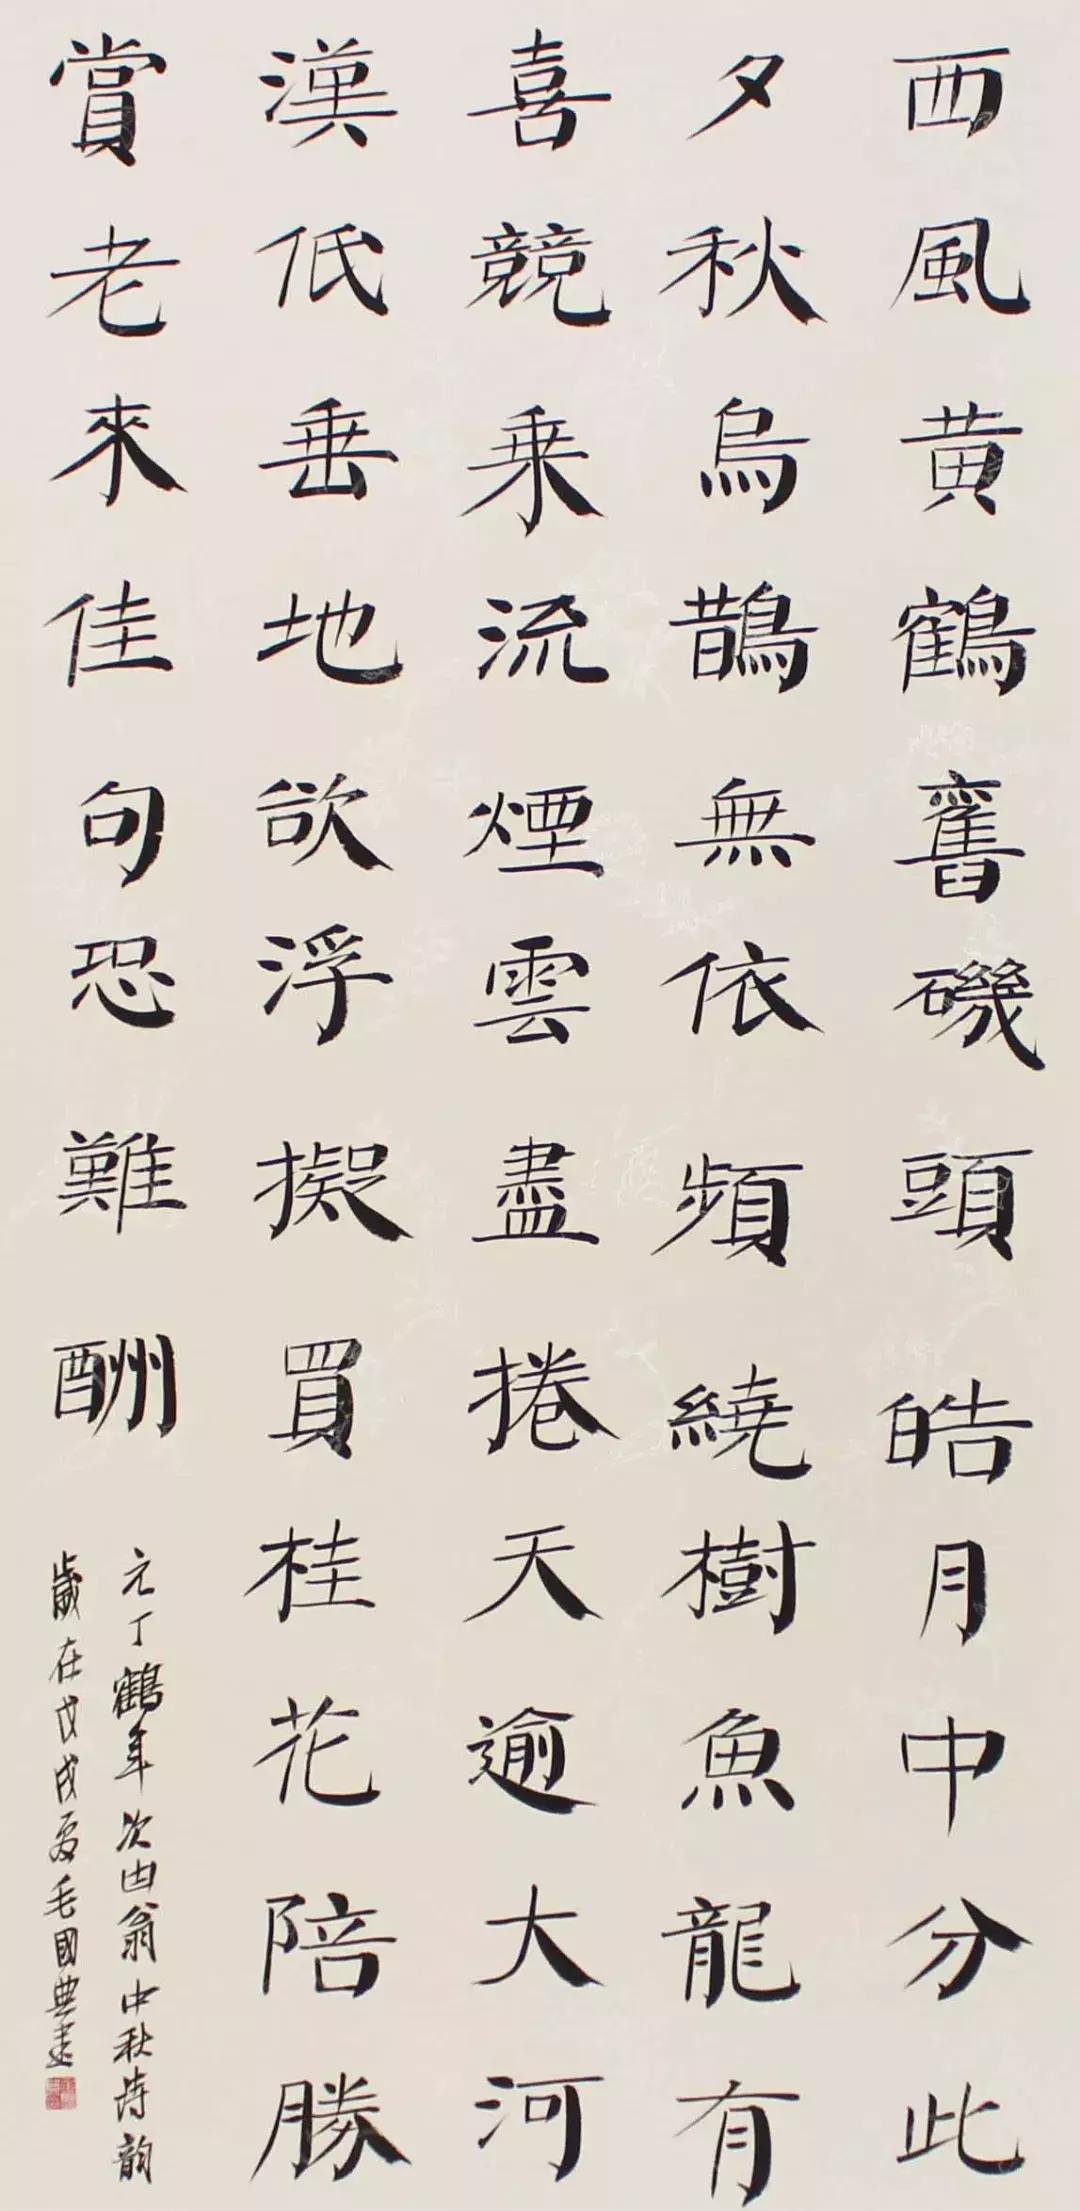 西風黄鶴舊磯頭皓月中分此
夕秋烏鵲無依頻繞樹魚龍有
喜競乗流煙雲盡捲天逾大河
漢低垂地欲浮擬買桂花陪勝
賞老來佳句恐難酬
元丁鶴年次由翁中秋詩韵
歲在戊戌夏毛國典書